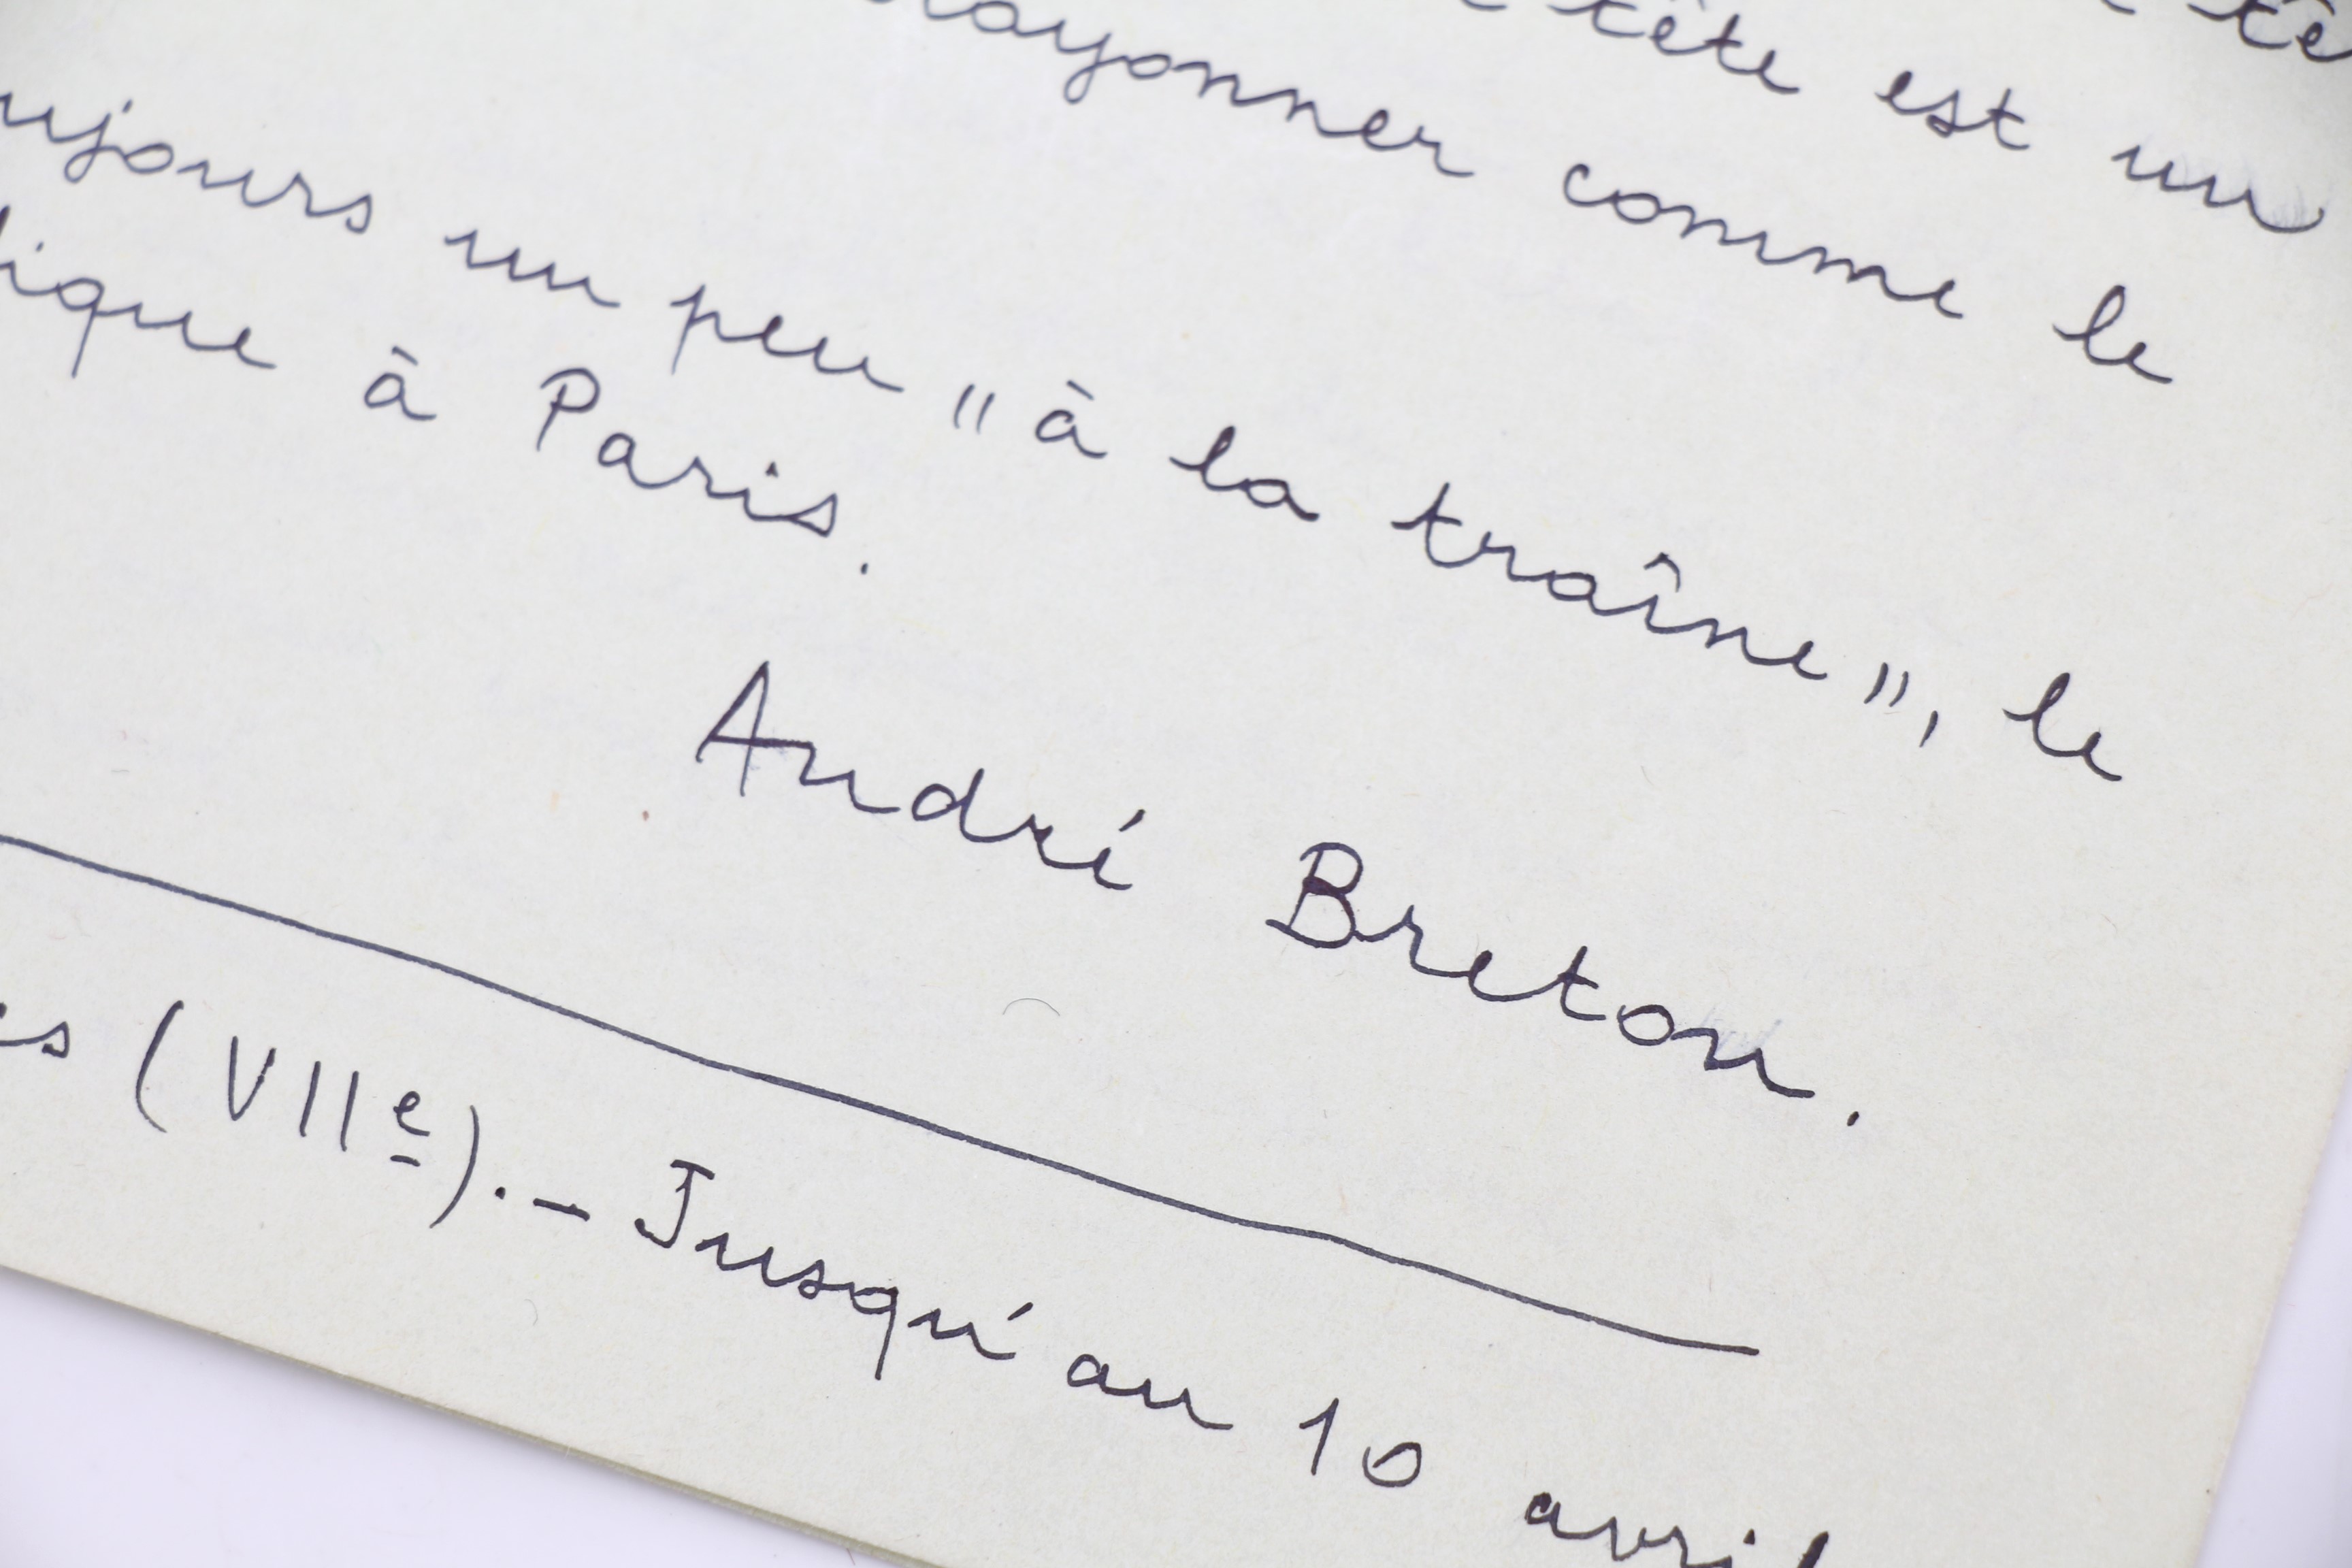 tête est un
rayonner comme le
ujours un peu "à la traîne", le
ique à Paris.
André Breton.
es (VIIe). - Jusqu'au 10 avril